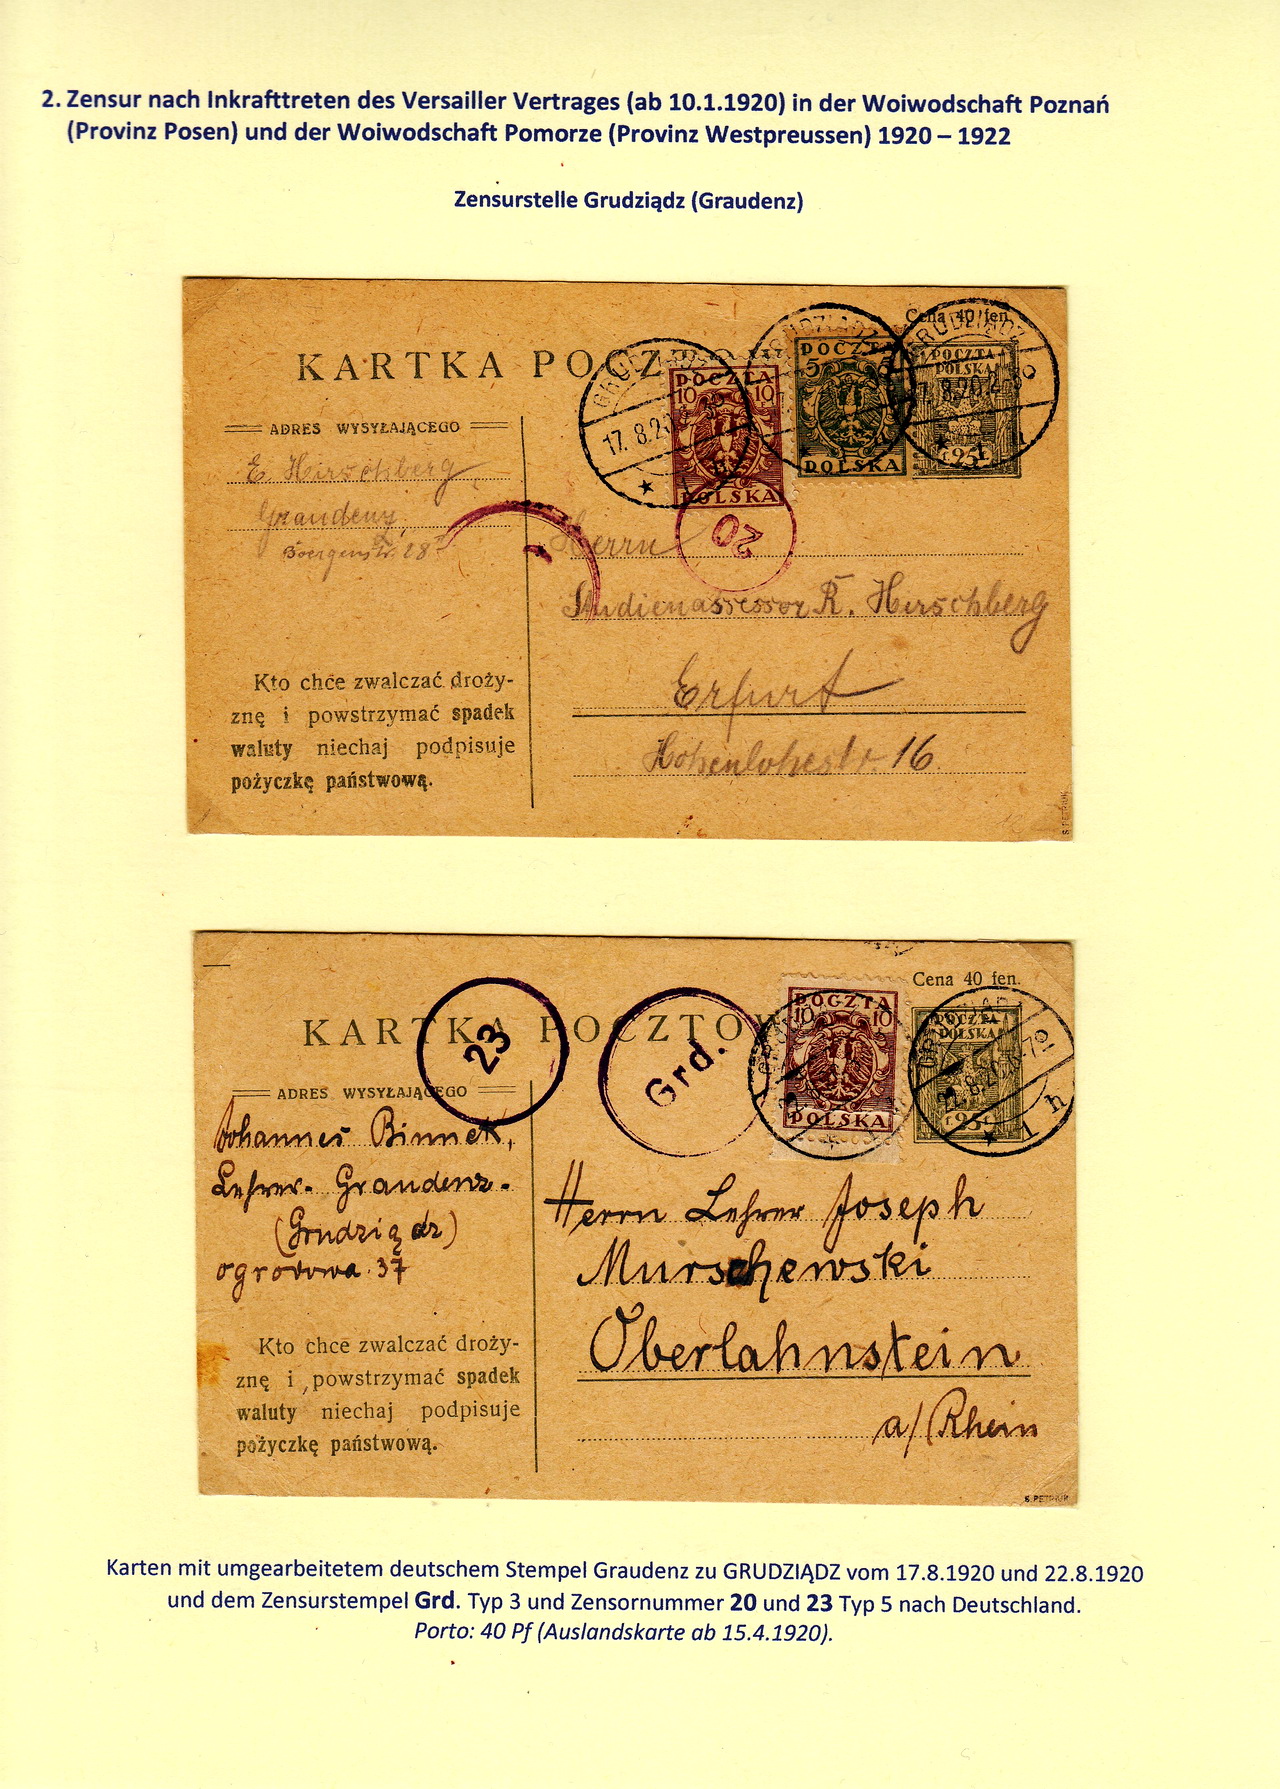 2. Zensur nach Inkrafttreten des Versailler Vertrages (ab 10.1.1920) in der Woiwodschaft Poznań
(Provinz Posen) und der Woiwodschaft Pomorze (Provinz Westpreussen) 1920 – 1922
Zensurstelle Grudziądz (Graudenz)
Cena 40 fen.
KARTKA POCZTOW
GRUDZIĄDZ
17.8.20
POCZTA
10 10
POLSKA
POCZTA
5 5
POLSKA
GRUDZIĄDZ
17.8.20.2-3
POCZTA
POLSKA
25
ADRES WYSYŁAJĄCEGO
E. Hirschberg
Graudenz
28
20
Herrn
Studienassessor R. Hirschberg
Erfurt
Hohenlohestr. 16
Kto chce zwalczać droży-
znę i powstrzymać spadek
waluty niechaj podpisuje
pożyczkę państwową.
S. PETRIUK
Cena 40 fen.
KARTKA POCZTOW
23
Grd.
POCZTA
10 10
POLSKA
POCZTA
POLSKA
25
22.8.20.
1 h
ADRES WYSYŁAJĄCEGO
Johannes Binnek,
Lehrer. Graudenz.
(Grudziądz)
ogrodowa 37
Herrn Lehrer Joseph
Murschewski
Oberlahnstein
a/Rhein
Kto chce zwalczać droży-
znę i powstrzymać spadek
waluty niechaj podpisuje
pożyczkę państwową.
S. PETRIUK
Karten mit umgearbeitetem deutschem Stempel Graudenz zu GRUDZIĄDZ vom 17.8.1920 und 22.8.1920
und dem Zensurstempel Grd. Typ 3 und Zensornummer 20 und 23 Typ 5 nach Deutschland.
Porto: 40 Pf (Auslandskarte ab 15.4.1920).